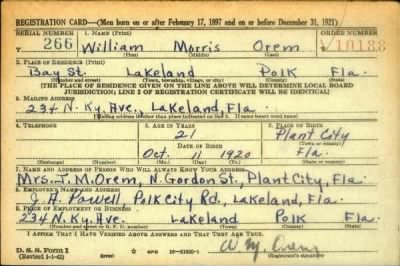 REGISTRATION CARD—(Men born on or after February 17, 1897 and on or before December 31, 1921)
SERIAL NUMBER 1. NAME (Print) ORDER NUMBER
266 William Morris Orem V10188
(First) (Middle) (Last)
2. PLACE OF RESIDENCE (Print)
Bay St. Lakeland Polk Fla.
(Number and street) (Town, township, village, or city) (County) (State)
[THE PLACE OF RESIDENCE GIVEN ON THE LINE ABOVE WILL DETERMINE LOCAL BOARD
JURISDICTION; LINE 2 OF REGISTRATION CERTIFICATE WILL BE IDENTICAL]
3. MAILING ADDRESS
234 N. Ky. Ave., Lakeland, Fla.
[Mailing address if other than place indicated on line 2. If same insert word same]
4. TELEPHONE 5. AGE IN YEARS 6. PLACE OF BIRTH
21 Plant City
DATE OF BIRTH (Town or county)
Oct. 11 1920 Fla.
(Exchange) (Number) (Mo.) (Day) (Yr.) (State or country)
7. NAME AND ADDRESS OF PERSON WHO WILL ALWAYS KNOW YOUR ADDRESS
Mrs. J. M. Orem, N. Gordon St., Plant City, Fla.
8. EMPLOYER'S NAME AND ADDRESS
J. A. Powell, Polk City Rd., Lakeland, Fla.
9. PLACE OF EMPLOYMENT OR BUSINESS
234 N. Ky. Ave. Lakeland Polk Fla.
(Number and street or R. F. D. number) (Town) (County) (State)
I AFFIRM THAT I HAVE VERIFIED ABOVE ANSWERS AND THAT THEY ARE TRUE.
D. S. S. Form 1
(Revised 1-1-42) (over) W. M. Orem
(Registrant's signature)